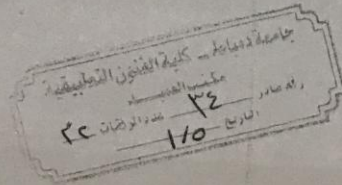 جامعة دمياط - كلية الفنون التطبيقية
مكتب العميد
رقم صادر ٣٤ عدد المرفقات ٢٢
التاريخ ١/٥